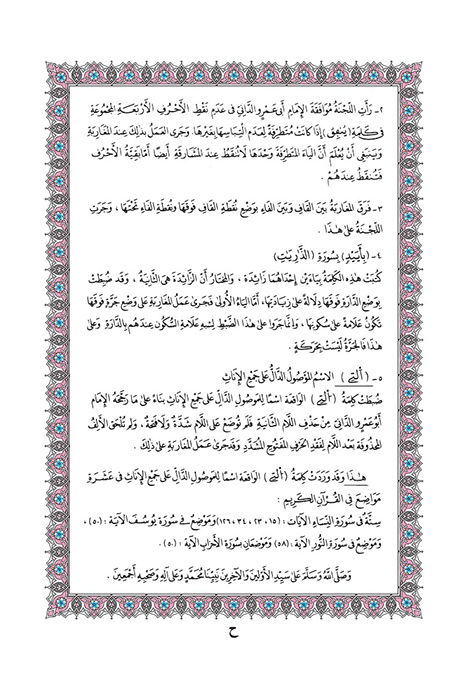 ٢ـ رَأَتِ اللَّجْنَةُ مُوَافَقَةَ الإِمَامِ أَبِي عَمْرٍو الدَّانِيِّ فِي عَدَمِ نَقْطِ الأَحْرُفِ الأَرْبَعَةِ المَجْمُوعَةِ
فِي كَلِمَةِ (يُنفِقُ) إِذَا كَانَتْ مُتَطَرِّفَةً لِعَدَمِ الْتِبَاسِهَا بِغَيْرِهَا وَجَرَى العَمَلُ بِذَلِكَ عِندَ المَغَارِبَةِ
وَيَنبَغِي أَنْ يُعْلَمَ أَنَّ اليَاءَ المُتَطَرِّفَةَ وَحْدَهَا لَا تُنقَطُ عِندَ المَشَارِقَةِ أَيْضًا أَمَّا بَقِيَّةُ الأَحْرُفِ
فَتُنقَطُ عِندَهُمْ .
٣ـ فَرَّقَ المَغَارِبَةُ بَيْنَ القَافِ وَبَيْنَ الفَاءِ بِوَضْعِ نُقطَةِ القَافِ فَوْقَهَا وَنُقْطَةِ الفَاءِ تَحْتَهَا ، وَجَرَتِ
اللَّجْنَةُ عَلَى هَذَا .
٤ـ (بِأَيْيْدٍ) بِسُورَةِ (الذَّارِيَاتِ)
كُتِبَتْ هَذِهِ الكَلِمَةُ بِيَاءَيْنِ إِحْدَاهُمَا زَائِدَة ، وَالمُخْتَارُ أَنَّ الزَّائِدَةَ هِيَ الثَّانِيَةُ ، وَقَد ضُبِطَتْ
بِوَضْعِ الدَّارَةِ فَوْقَهَا دِلَالَةً عَلَى زِيَادَتِهَا ، أَمَّا اليَاءُ الأُولَى فَجَرَى عَمَلُ المَغَارِبَةِ عَلَى وَضْعِ جَرَّةٍ فَوْقَهَا
تَكُونُ عَلَامَةً عَلَى سُكُونِهَا ، وَإِنَّمَا جَرَوْا عَلَى هَذَا الضَّبْطِ لِشَبَهِ عَلَامَةِ السُّكُونِ عِندَهُمْ بِالدَّارَةِ وَعَلَى
هَذَا فَالجَرَّةُ لَيْسَتْ بِحَرَكَةٍ .
٥ـ (الَّتِي) الاسْمُ المَوْصُولُ الدَّالُّ عَلَى جَمْعِ الإِنَاثِ
ضُبِطَتْ كَلِمَةُ (الَّتِي) الوَاقِعَةُ اسْمًا لِلْمَوْصُولِ الدَّالِّ عَلَى جَمْعِ الإِنَاثِ بِنَاءً عَلَى مَا رَجَّحَهُ الإِمَام
أَبُو عَمْرٍو الدَّانِيُّ مِنْ حَذْفِ اللَّامِ الثَّانِيَةِ فَلَمْ تُوضَعْ عَلَى اللَّامِ شَدَّةٌ وَلَا فَتْحَةٌ ، وَلَمْ تُلْحَقِ الأَلِفُ
المَحْذُوفَةُ بَعْدَ اللَّامِ لِفَقْدِ الحَرْفِ المَفْتُوحِ المُشَدَّدِ وَقَد جَرَى عَمَلُ المَغَارِبَةِ عَلَى ذَلِكَ .
هَذَا وَقَد وَرَدَتْ كَلِمَةُ (الَّتِي) الوَاقِعَة اسْمًا لِلْمَوْصُولِ الدَّالِّ عَلَى جَمْعِ الإِنَاثِ فِي عَشَرَةِ
مَوَاضِعَ فِي القُرْآنِ الكَرِيمِ :
سِتَّةٌ فِي سُورَةِ النِّسَاءِ الآيَات : (١٥، ٢٣، ٣٤، ١٢٦) وَمَوْضِعٌ فِي سُورَةِ يُوسُفَ الآيَة : (٥٠) ،
وَمَوْضِعٌ فِي سُورَةِ النُّورِ الآيَة : (٥٨) وَمَوْضِعَانِ بِسُورَةِ الأَحْزَابِ الآيَة : (٥٠) .
وَصَلَّى اللَّهُ وَسَلَّمَ عَلَى سَيِّدِ الأَوَّلِينَ وَالآخِرِينَ نَبِيِّنَا مُحَمَّدٍ وَعَلَى آلِهِ وَصَحْبِهِ أَجْمَعِينَ .
ح